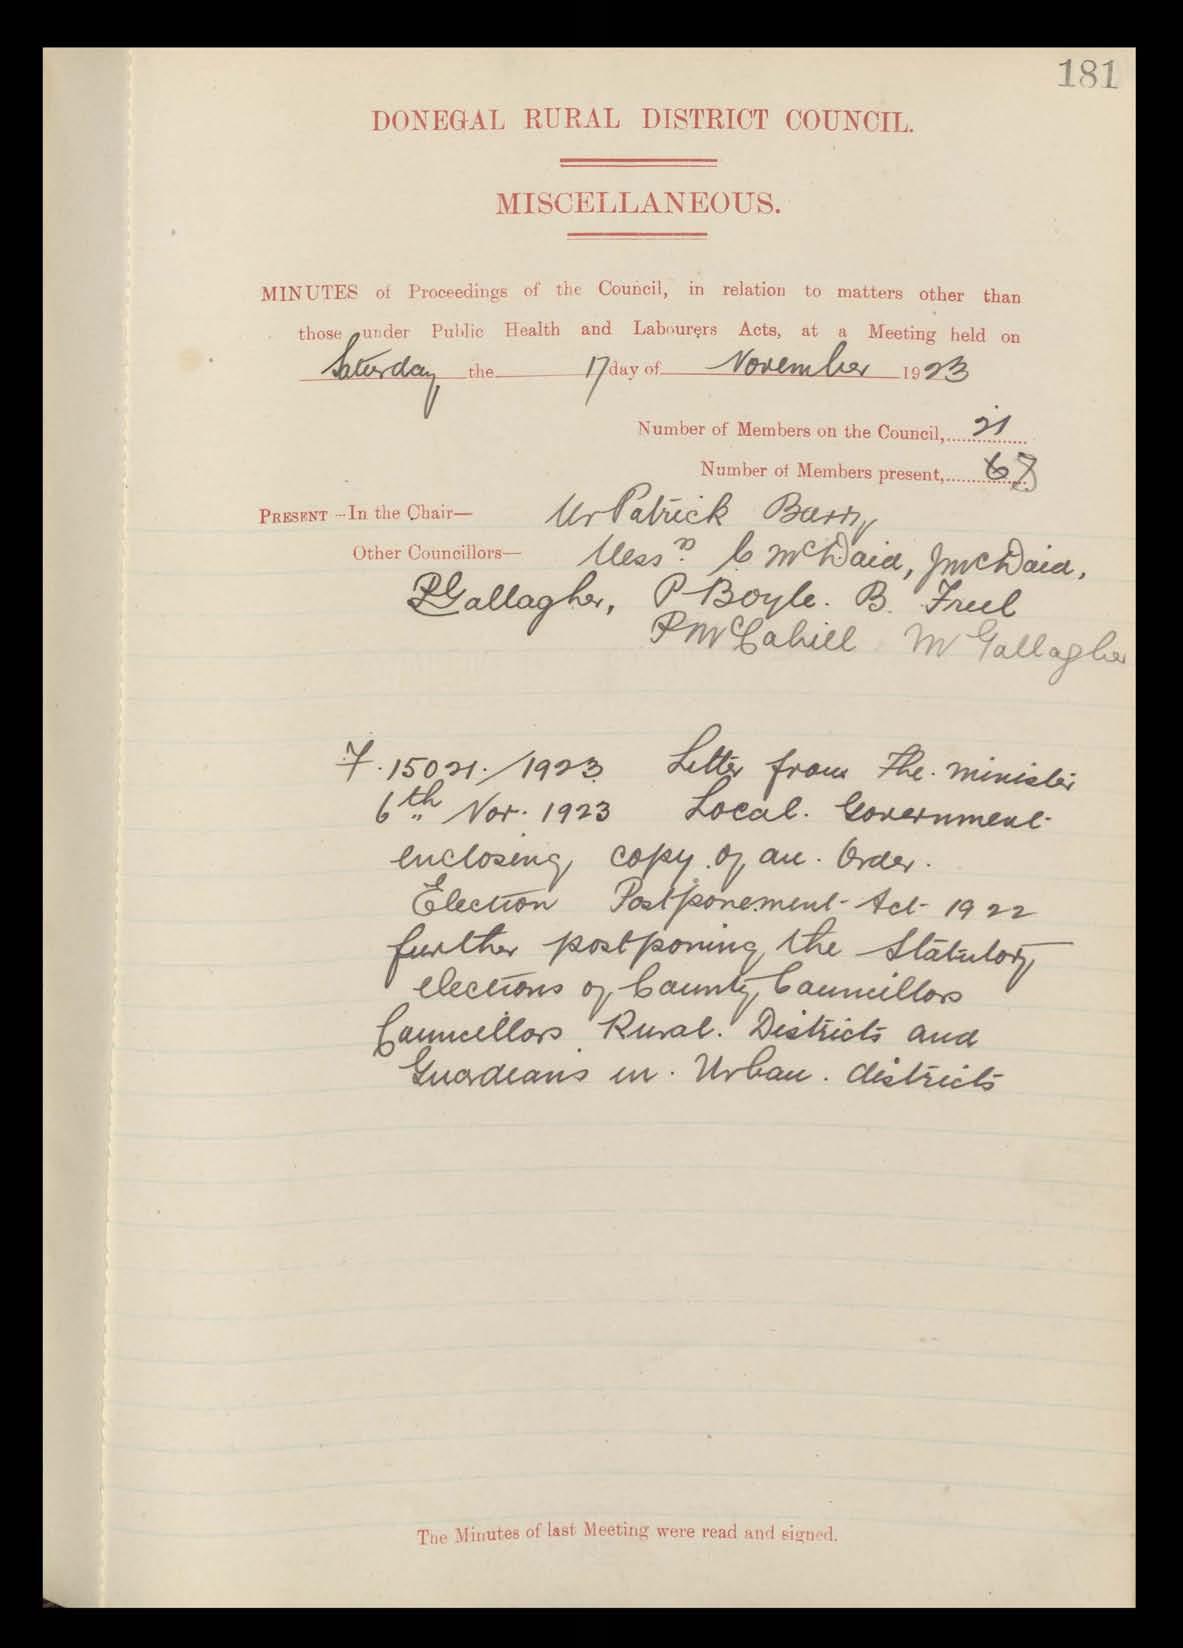 181
DONEGAL RURAL DISTRICT COUNCIL.
MISCELLANEOUS.
MINUTES of Proceedings of the Council, in relation to matters other than
those under Public Health and Labourers Acts, at a Meeting held on
Saturday the 17 day of November 1923
Number of Members on the Council, 21
Number of Members present,
PRESENT—In the Chair— Mr Patrick Barry
Other Councillors— Messrs C McDaid, J McDaid,
P Gallagher, P Boyle. B. Freel
P McCahill M Gallagher
F. 15021./1923 Letter from The. Minister
6th Nov. 1923 Local. Government
enclosing copy of an. Order.
Election Postponement Act 1922
further postponing the Statutory
elections of County Councillors
Councillors Rural. Districts and
Guardians in. Urban. districts
The Minutes of last Meeting were read and signed.